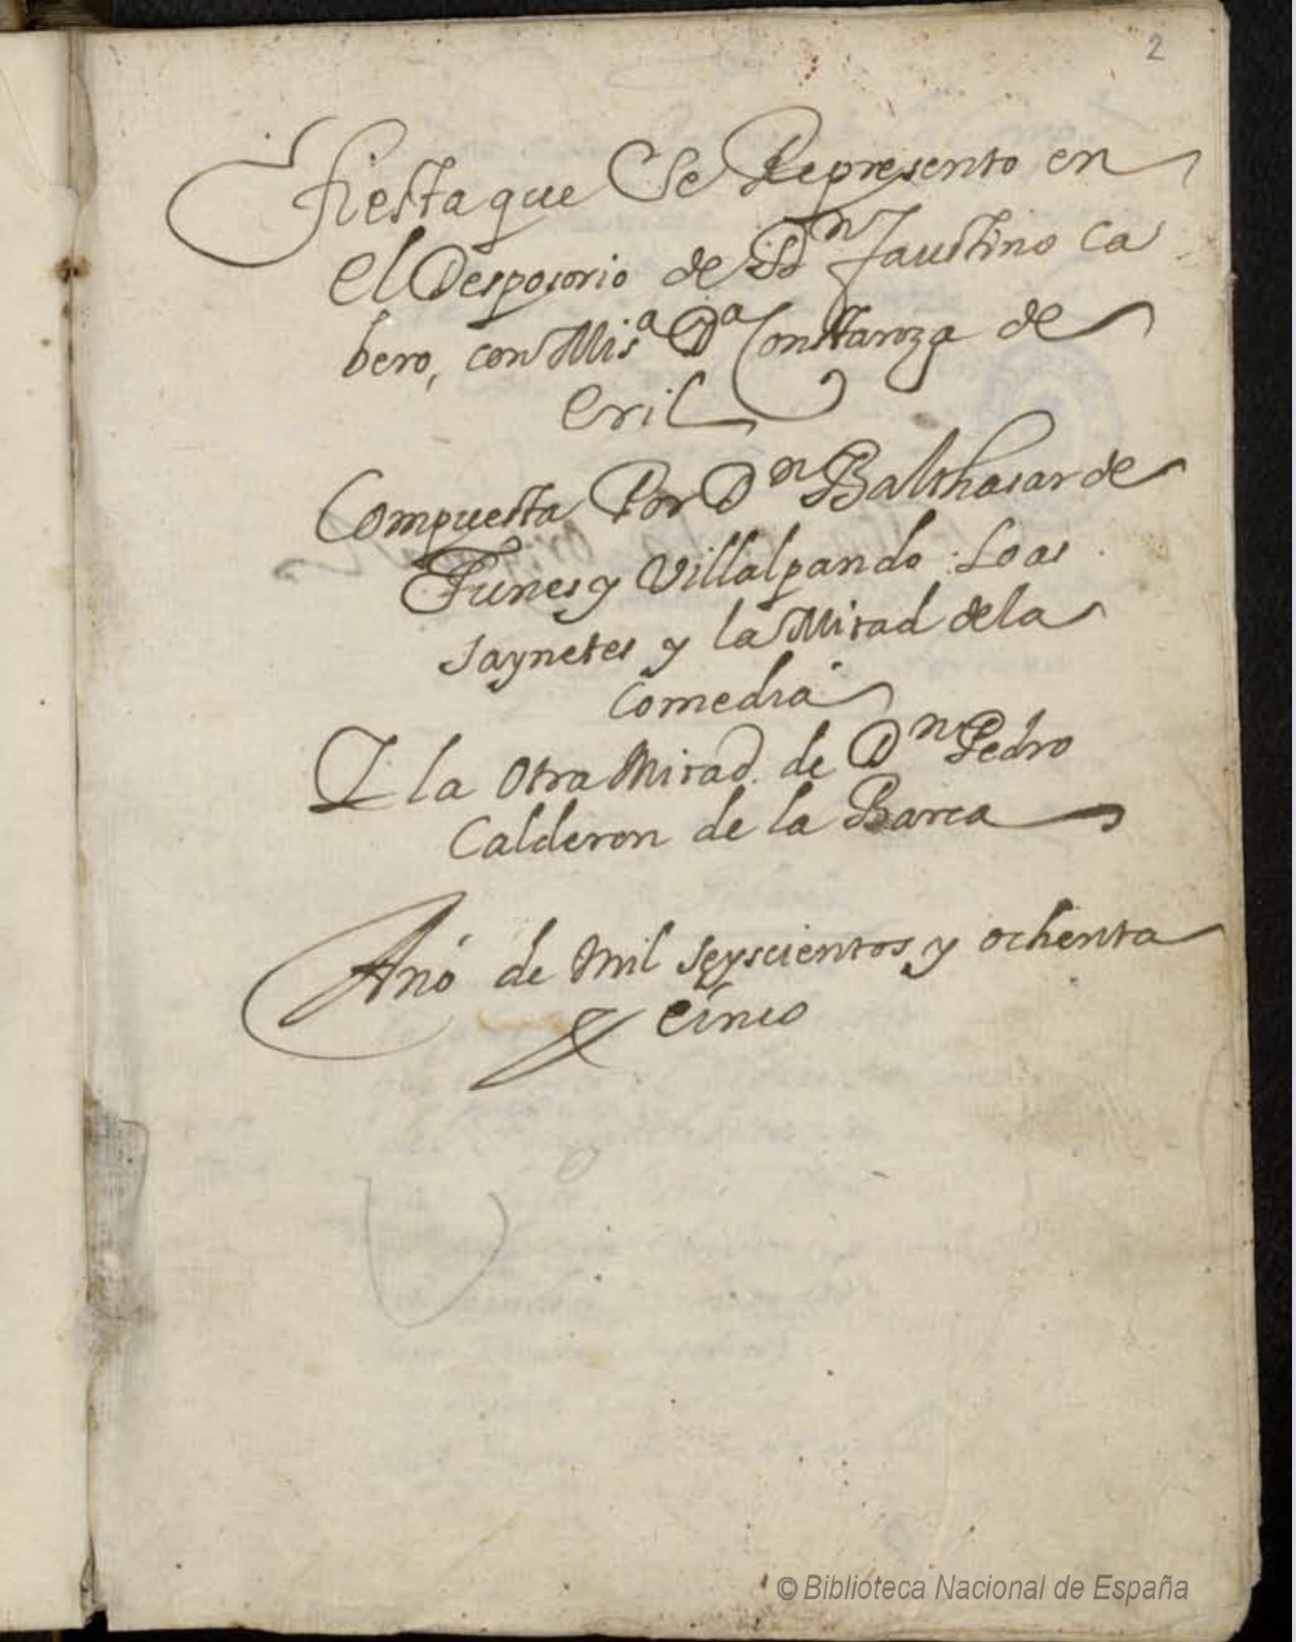 2
Fiesta que Se Represento en
el Desposorio de Dn Faustino Ca
bero, con Mi sa Da Constanza de
Eril
Compuesta Por Dn Balthasar de
Funes y Villalpando. Loas
saynetes y la Mitad dela
Comedia
Y la Otra Mitad de Dn Pedro
Calderon de la Barca
Año de Mil seyscientos y ochenta
y cinco
© Biblioteca Nacional de España